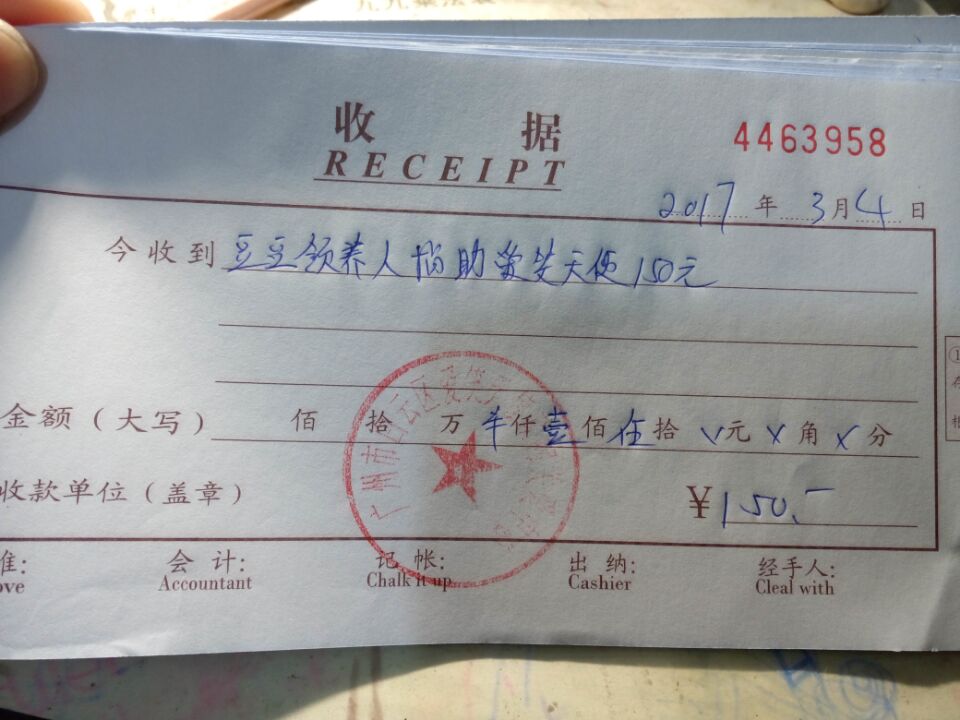 收 据
4463958
RECEIPT
2017 年 3 月 4 日
今收到 豆豆领养人 捐助 爱笑天使 150元
金额（大写） 佰 拾 万 仟 壹 佰 伍 拾 元 角 分
收款单位（盖章） ¥150.-
广州市白云区
准: 会 计: 记 帐: 出 纳: 经手人:
ove Accountant Chalk it up Cashier Cleal with